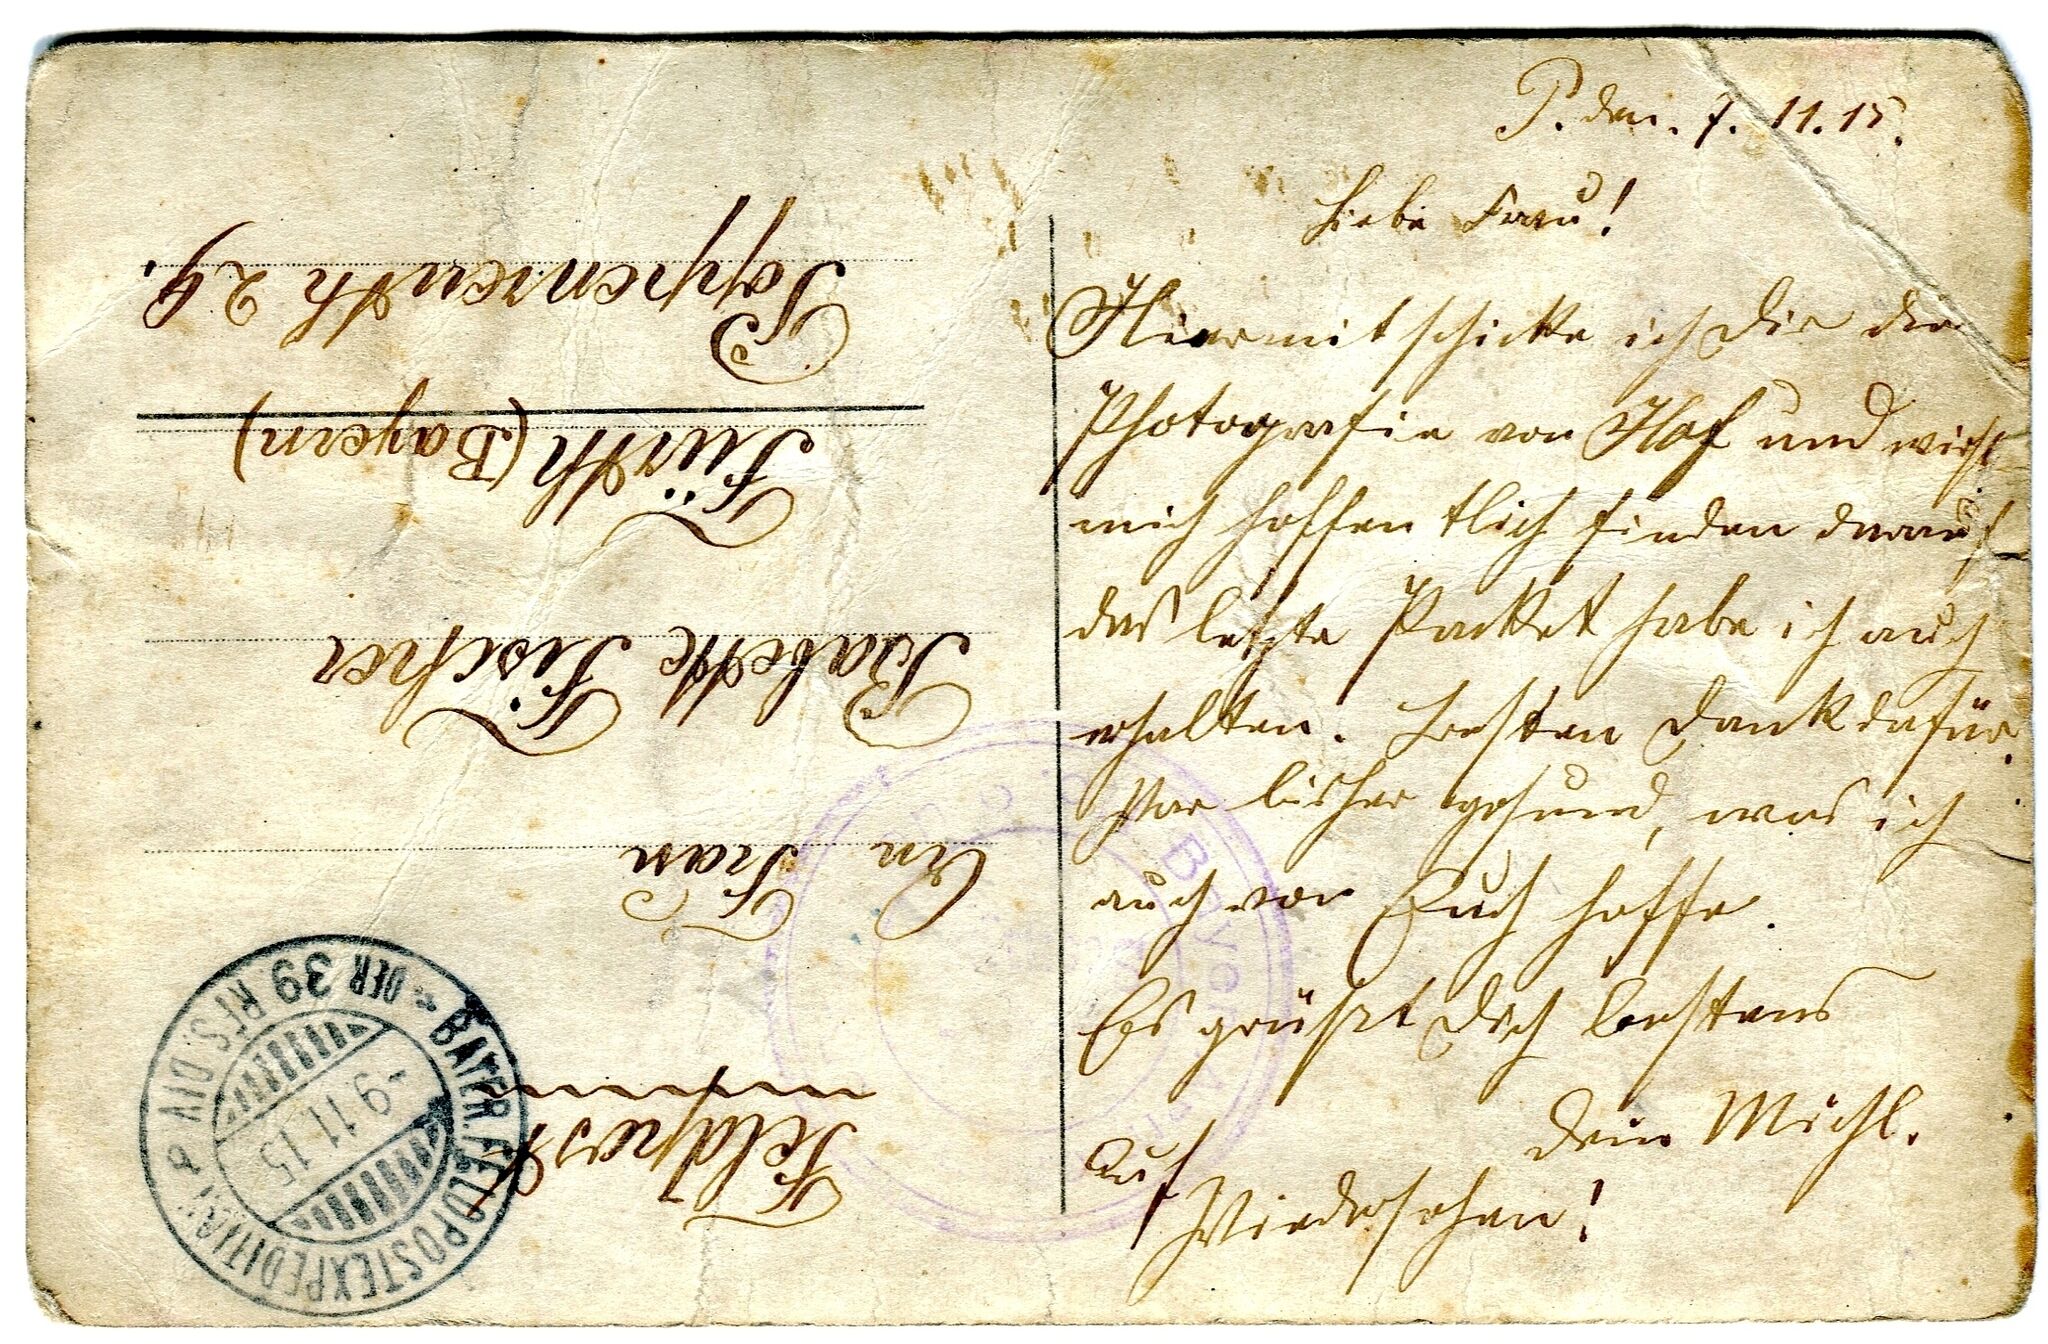 P. den. 7. 11. 15.
Liebe Frau!
Hiermit schicke ich Dir die
Photografie von Hof und wirst
mich hoffentlich finden darauf
das letzte Packet habe ich auch
erhalten. Besten Dank dafür.
War bisher gesund, was ich
auch von Euch hoffe.
Es grüßt Dich bestens
Dein Michl.
Auf
Wiedersehen!
Feldpost
An
Frau
Babette Fischer
Fürth (Bayern)
Poppenreuth 29.
BAYER. FELDPOSTEXPEDITION
DER 39 RES. DIV
-9.11.15
Bayer.